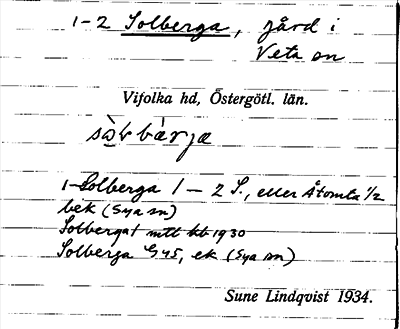 1-2 Solberga, gård i
Veta sn
Vifolka hd, Östergötl. län.
1-Solberga 1-2 S., eller Åtomta 1/2
bek (Sya sn)
Solberga 1 mtl kb 1930
Solberga G45, ek (Sya sn)
Sune Lindqvist 1934.